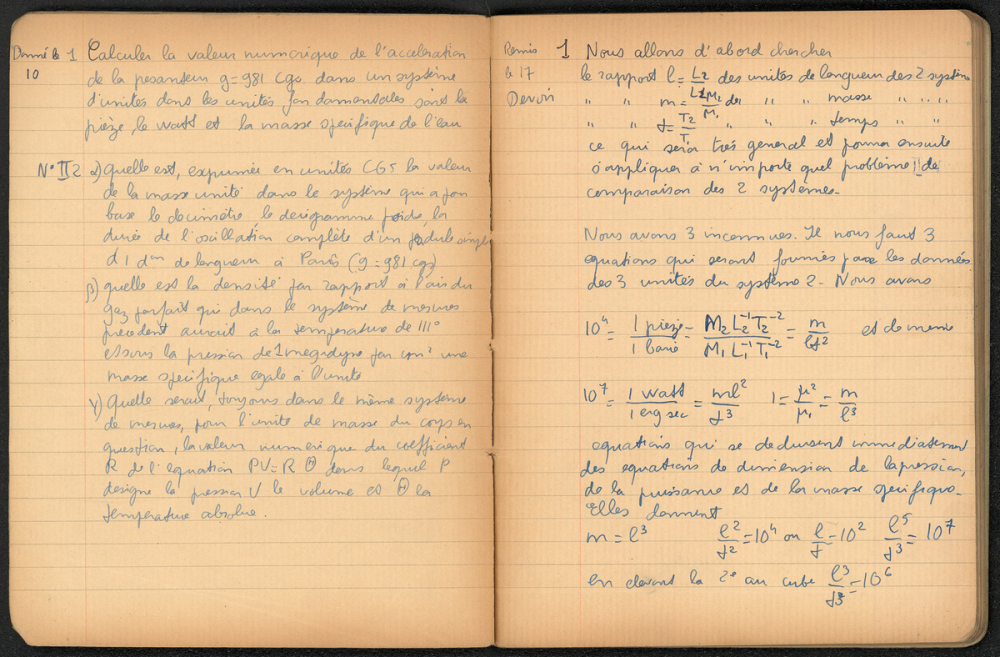 Donné le 1 Calculer la valeur numérique de l'accélération
10 de la pesanteur g=981 cgs dans un système
d'unités dont les unités fondamentales sont la
pièze, le watt et la masse spécifique de l'eau
N° II 2 α) Quelle est, exprimée en unités CGS la valeur
de la masse unité dans le système qui a pour
base le décimètre le décigramme poids, la
durée de l'oscillation complète d'un pendule simple
d'1 dm de longueur à Paris (g=981 cgs)
β) quelle est la densité par rapport à l'air du
gaz parfait qui dans le système de mesures
précédent aurait à la température de 111°
et sous la pression de 1 megadyne par cm² une
masse spécifique égale à l'unité.
γ) Quelle serait, toujours dans le même système
de mesures, pour l'unité de masse du corps en
question, la valeur numérique du coefficient
R de l'équation PV=RΘ dans lequel P
désigne la pression V le volume et Θ la
température absolue.
Remis 1 Nous allons d'abord chercher
le 17 le rapport l = L2/L1 des unités de longueur des 2 systèmes
Devoir " " m = M2/M1 de " " masse " " " "
" " t = T2/T1 " " " temps " "
ce qui sera très général et pourra ensuite
s'appliquer à n'importe quel problème de
comparaison des 2 systèmes.
Nous avons 3 inconnues. Il nous faut 3
equations qui seront fournies par les données
des 3 unités du système 2. Nous avons
10⁴ = 1 pièze/1 barie = M₂L₂⁻¹T₂⁻²/M₁L₁⁻¹T₁⁻² = m/lt² et de même
10⁷ = 1 watt/1 erg sec = ml²/t³ 1 = μ²/μ₁ = m/l³
equations qui se deduisent immediatement
des equations de dimension de la pression,
de la puissance et de la masse spécifique.
Elles donnent
m = l³ l²/t² = 10⁴ ou l/t = 10² l⁵/t³ = 10⁷
en elevant la 2e au cube l³/t³ = 10⁶